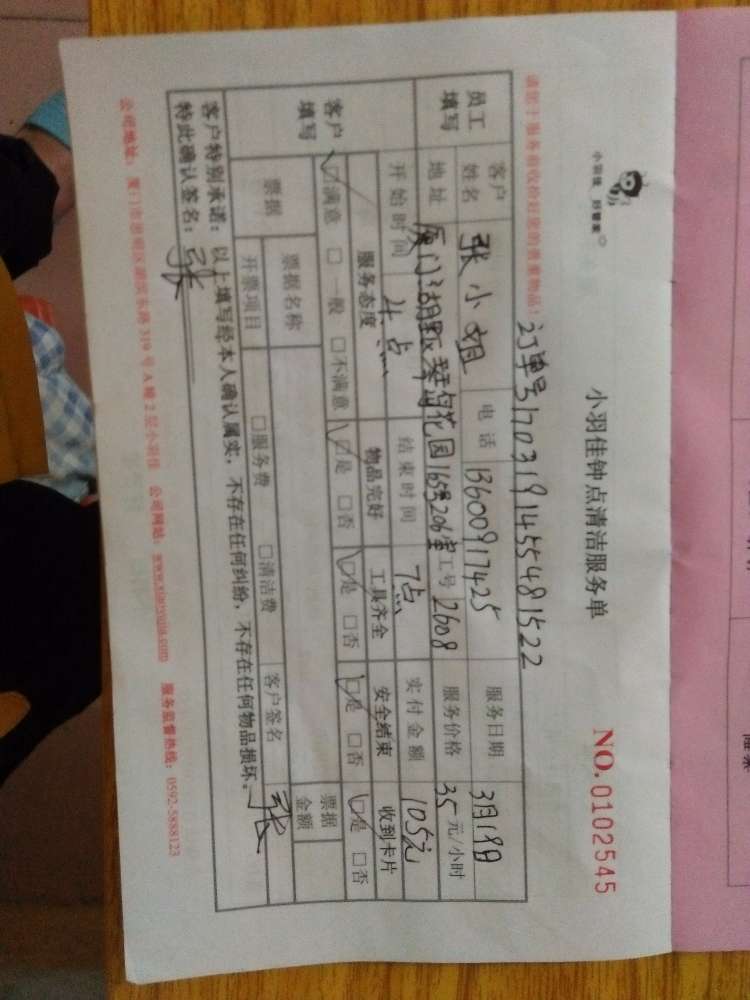 小羽佳 好管家
小羽佳钟点清洁服务单
NO.0102545
请您于服务前收拾好您的贵重物品!
订单号17031914554815​22
员工填写 客户姓名 张小姐 电话 13600917425 服务日期 3月19日
地址 厦门湖畔琴韵花园165号206室 工号 2608 服务价格 35元/小时
客户填写 开始时间 4点 结束时间 7点 实付金额 105元
服务态度 物品完好 工具齐全 安全结束 收到卡片
☑满意 □一般 □不满意 ☑是 □否 ☑是 □否 ☑是 □否 ☑是 □否
票据 票据名称 票据金额
开票项目 □服务费 □清洁费 客户签名 张
客户特别承诺:以上填写经本人确认属实,不存在任何纠纷,不存在任何物品损坏。
特此确认签名:张
公司地址:厦门市思明区湖滨东路319号A幢2层小羽佳 公司网站:www.xiaoyujia.com 服务监督热线:0592-5888123